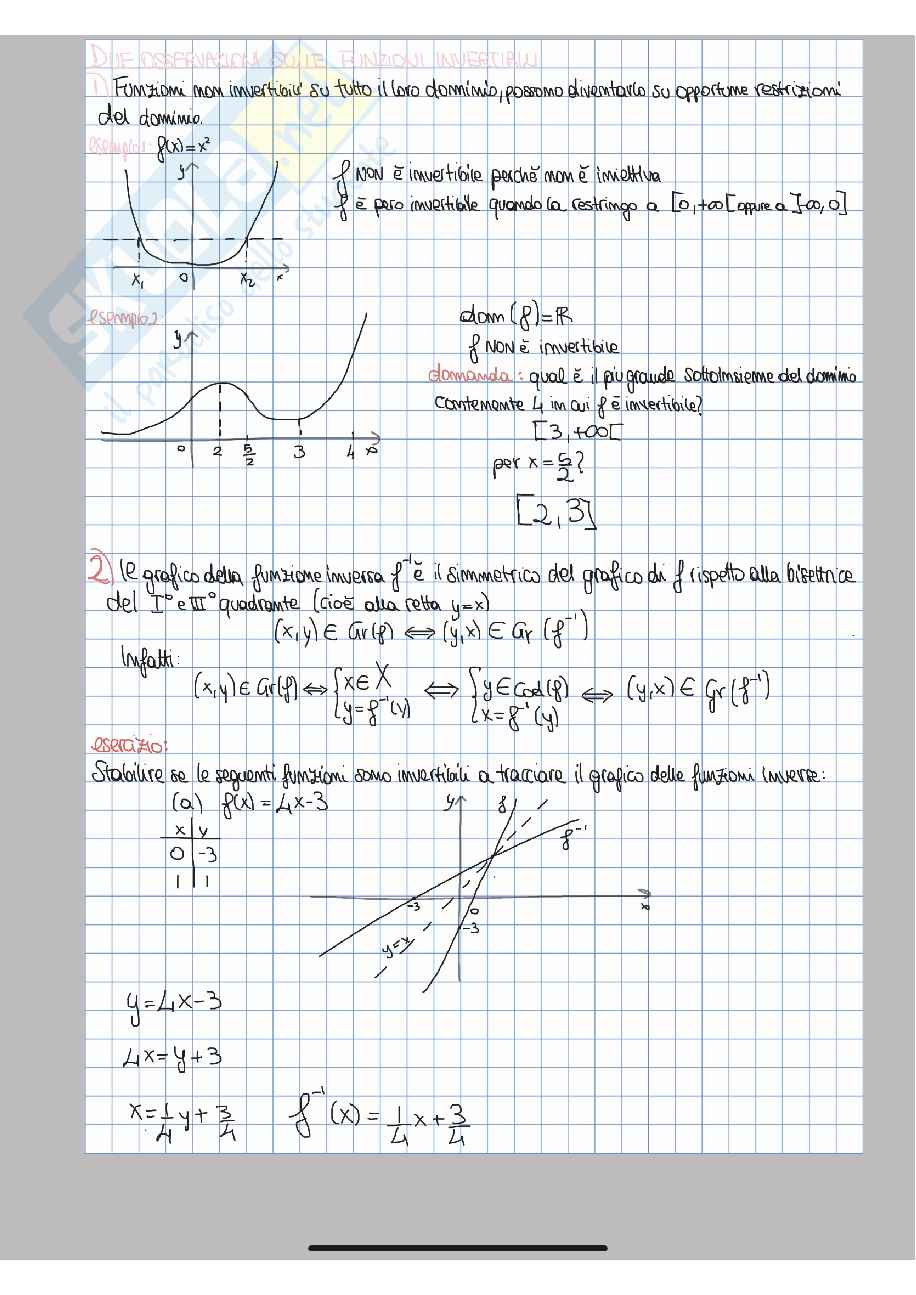 DUE OSSERVAZIONI SULLE FUNZIONI INVERTIBILI
1) Funzioni non invertibili su tutto il loro dominio, possono diventarlo su opportune restrizioni
del dominio.
esempio1: f(x)=x²
y
f NON è invertibile perchè non è iniettiva
f è però invertibile quando la restringo a [0,+∞[ oppure a ]-∞,0]
x₁ 0 x₂ x
esempio2
y
dom(f)=ℝ
f NON è invertibile
domanda: qual è il più grande sottoinsieme del dominio
contenente 4 in cui f è invertibile?
[3,+∞[
0 2 5/2 3 4 x
per x=5/2?
[2,3]
2) Le grafico della funzione inversa f⁻¹ è il simmetrico del grafico di f rispetto alla bisettrice
del I° e III° quadrante (cioè alla retta y=x)
(x,y)∈Gr(f) ⟺ (y,x)∈Gr(f⁻¹)
Infatti:
(x,y)∈Gr(f) ⟺ {x∈X ⟺ {y∈Cod(f) ⟺ (y,x)∈Gr(f⁻¹)
y=f⁻¹(y) x=f⁻¹(y)
esercizio:
Stabilire se le seguenti funzioni sono invertibili a tracciare il grafico delle funzioni inverse:
(a) f(x)=4x-3
y f
x y
f⁻¹
0 -3
1 1
-3 0 x
-3
y=x
y=4x-3
4x=y+3
x=1/4y+3/4 f⁻¹(x)=1/4x+3/4
skuola.net
il paradiso dello studente